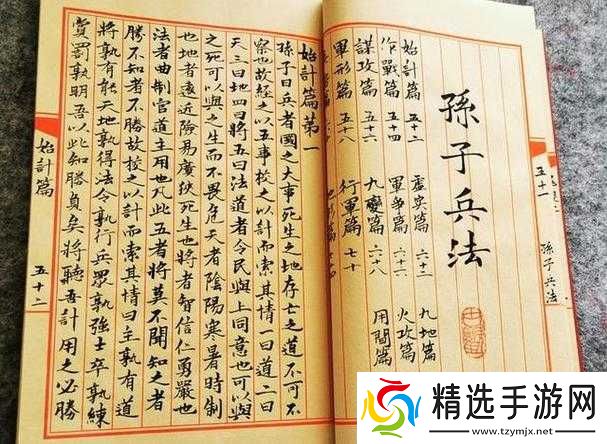 五十一
孫子兵法
孫子兵法
始計篇 五十二 虛實篇 六十二 九地篇
作戰篇 五十四 軍爭篇 火攻篇
謀攻篇 五十六 九變篇 六十八 用間篇
軍形篇 五十八 行軍篇 七十
始計篇第一
孫子曰兵者國之大事死生之地存亡之道不可不
察也故經之以五事校之以計而索其情一曰道二曰
天三曰地四曰將五曰法道者令民與上同意也可以與
之死可以與之生而不畏危天者陰陽寒暑時制
也地者遠近險易廣狹死生也將者智信仁勇嚴也
法者曲制官道主用也凡此五者將莫不聞知之者
勝不知者不勝故校之以計而索其情曰主孰有道
將孰有能天地孰得法令孰行兵眾孰強士卒孰練
賞罰孰明吾以此知勝負矣將聽吾計用之必勝
始計篇
五十二
精选手游网
www.tzymjx.net